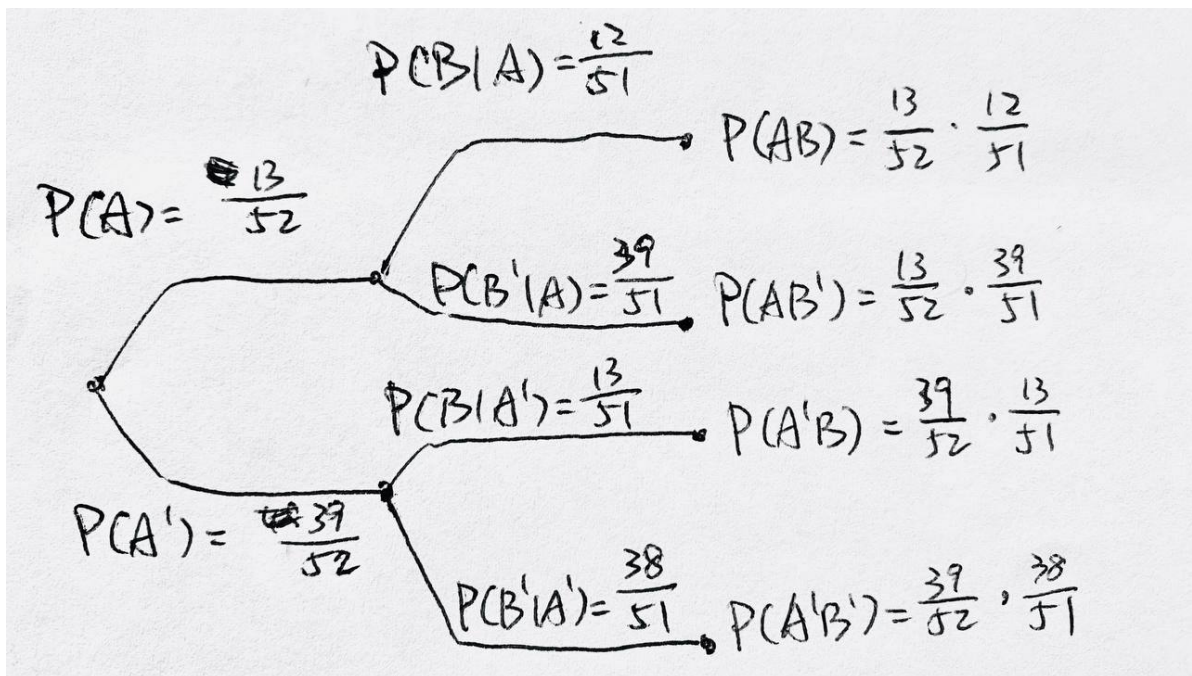 P(B|A) = 12/51
P(AB) = 13/52 · 12/51
P(A) = 13/52
P(B'|A) = 39/51
P(AB') = 13/52 · 39/51
P(B|A') = 13/51
P(A'B) = 39/52 · 13/51
P(A') = 39/52
P(B'|A') = 38/51
P(A'B') = 39/52 · 38/51